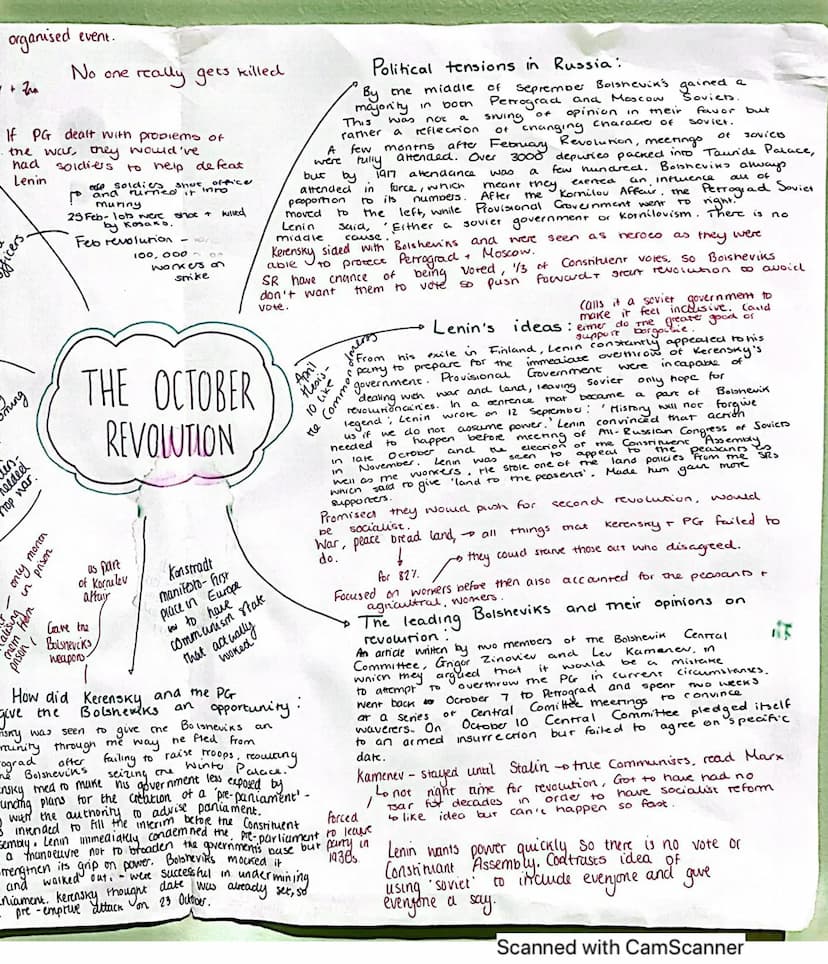 organised event.
No one really gets killed
If PG dealt with problems of
the war, they would've
had soldiers to help defeat
Lenin
soldiers shot officer
and turned it into
mutiny
25 Feb - lots were shot + killed
by Kosaks.
Feb revolution -
100,000
workers on
strike
THE OCTOBER
REVOLUTION
Political tensions in Russia:
By the middle of September Bolsheviks gained a
majority in both Petrograd and Moscow Soviets.
This was not a swing of opinion in their favor but
rather a reflection of changing character of soviet.
A few months after February Revolution, meetings of soviets
were fully attended. Over 3000 deputies packed into Tauride Palace,
but by 1917 attendance was a few hundred. Bolsheviks always
attended in force, which meant they exerted an influence out of
proportion to its numbers. After the Kornilov Affair, the Petrograd Soviet
moved to the left, while Provisional Government went to right.
Lenin said, 'Either a soviet government or Kornilovism. There is no
middle cause.
Kerensky sided with Bolsheviks and were seen as heroes as they were
able to protect Petrograd + Moscow.
SR have chance of being voted, 1/3 of Constituent votes, so Bolsheviks
don't want them to vote so push forward + start revolution to avoid
vote.
Lenin's ideas:
calls it a soviet government to
make it feel inclusive. (and
either do the greater good or
support
April
thesis -
10 like
the Commandments
From his exile in Finland, Lenin constantly appealed to his
party to prepare for the immediate overthrow of Kerensky's
government. Provisional Government were incapable of
dealing with war and land, leaving soviet only hope for
revolutionaries. In a sentence that became a part of Bolshevik
legend; Lenin wrote on 12 September: 'History will not forgive
us if we do not assume power.' Lenin convinced that action
needed to happen before meeting of All-Russian Congress of Soviets
in late October and the election of the Constituent Assembly
in November. Lenin was seen to appeal to the peasants as
well as the workers. He stole one of the land policies from the SRs
which said to give 'land to the peasents'. Made him gain more
supporters.
Promised they would push for second revolution, would
be socialist.
War, peace bread land, → all things that Kerensky + PG failed to
do.
for 82%
they could starve those out who disagreed.
Focused on workers before then also accounted for the peasants +
agricultral, women.
The leading Bolsheviks and their opinions on
revolution:
An article written by two members of the Bolshevik Central
Committee, Grigor Zinoviev and Lev Kamenev, in
which they argued that it would be a mistake
to attempt to overthrow the PG in current circumstances.
Went back October 7 to Petrograd and spent two weeks
at a series of Central Comittee meetings to convince
waverers. On October 10 Central Committee pledged itself
to an armed insurrection but failed to agree on specific
date.
Kamenev - stayed until Stalin → true Communist, read Marx
not right time for revolution, Got to have had no
tsar for decades in order to have socialist reform
like idea but can't happen so fast.
forced
to leave
party in
1930s
Lenin wants power quickly so there is no vote or
Constituant Assembly. Contrasts idea of
using 'soviet' to include everyone and give
everyone a say.
Konstradt
manifesto - first
place in Europe
to have
communism state
that actually
worked
as part
of Kornilev
affair
Gave the
Bolsheviks
weapons
only month
in prison
them from
prison!
How did Kerensky and the PG
give the Bolsheviks an opportunity:
sky was seen to give the Bolsheviks an
tunity through the way he fled from
ograd after failing to raise troops, resulting
Bolsheviks seizing the Winter Palace.
nsky tried to make his government less exposed by
uncing plans for the creation of a 'pre-parliament' -
with the authority to advise parliament.
intended to fill the interim before the Constituent
sembly. Lenin immediately condemned the Pre-parliament
a manoeuvre not to broaden the governments base but
trengthen its grip on power. Bolsheviks mocked it
and walked out. - were successful in undermining
rliament. Kerensky thought date was already set, so
pre-emptive attack on 23 October.
Scanned with CamScanner